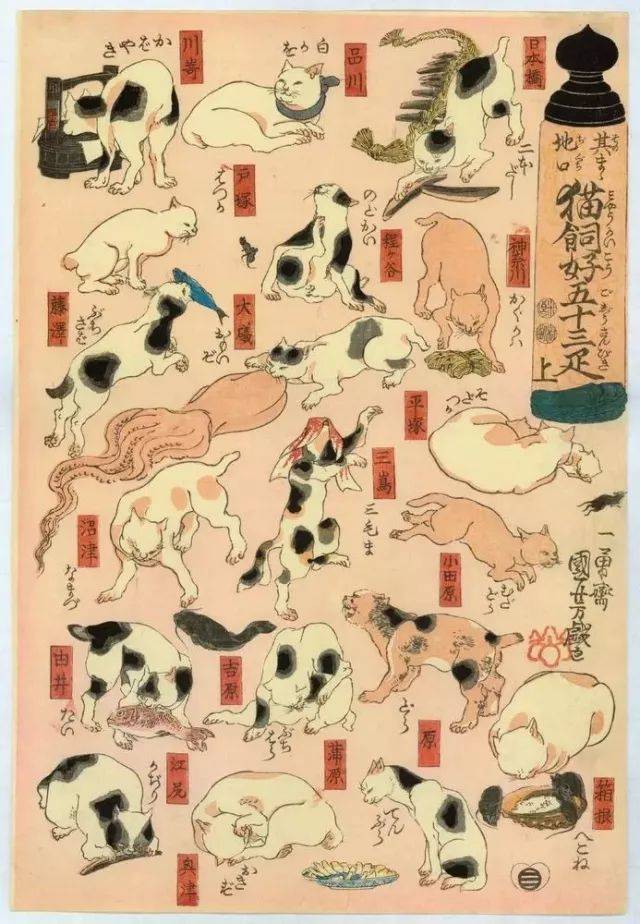 其まゝ
地口
猫飼好五十三疋
上
日本橋
二本だし
品川
白かを
川嵜
かばやき
神奈川
かぐかハ
程ヶ谷
のどかい
戸塚
はつか
藤澤
ぶちさば
大礒
おもいぞ
平塚
そだつか
三嶌
三毛ま
沼津
なまづ
小田原
むだどら
一勇齋
國芳戯画
箱根
へこね
原
どら
吉原
ぶちはら
由井
たい
蒲原
てんぷら
江尻
かぢり
奥津
おきず